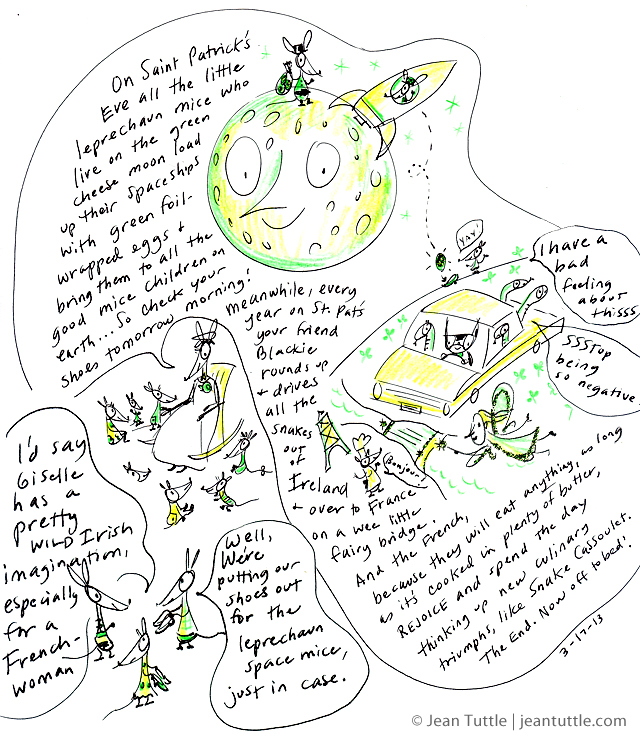 On Saint Patrick's
Eve all the little
leprechaun mice who
live on the green
cheese moon load
up their spaceships
with green foil-
wrapped eggs +
bring them to all the
good mice children on
earth... So check your
shoes tomorrow morning!
YAY!
I have a
bad
feeling
about
thisss
SSStop
being
so negative!
meanwhile, every
year on St. Pat's
your friend
Blackie
rounds up
+ drives
all the
snakes
out
of
Ireland
+ over to France
on a wee little
fairy bridge.
Bonjour!
And the French,
because they will eat anything, as long
as it's cooked in plenty of butter,
REJOICE and spend the day
thinking up new culinary
triumphs, like Snake Cassoulet.
The End. Now off to bed!
3-17-13
I'd say
Giselle
has a
pretty
WILD Irish
imagination,
especially
for a
French-
woman
Well,
We're
putting our
shoes out
for the
leprechaun
space mice,
just in case.
© Jean Tuttle | jeantuttle.com